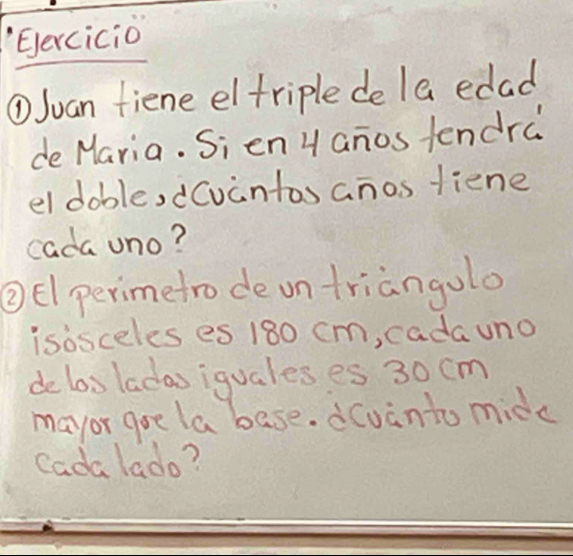 "Ejercicio"
① Juan tiene el triple de la edad
de Maria. Si en 4 años tendrá
el doble, ¿Cuántos años tiene
cada uno?
② El perimetro de un triángulo
isósceles es 180 cm, cada uno
de los lados iguales es 30 cm
mayor que la base. ¿Cuánto mide
cada lado?